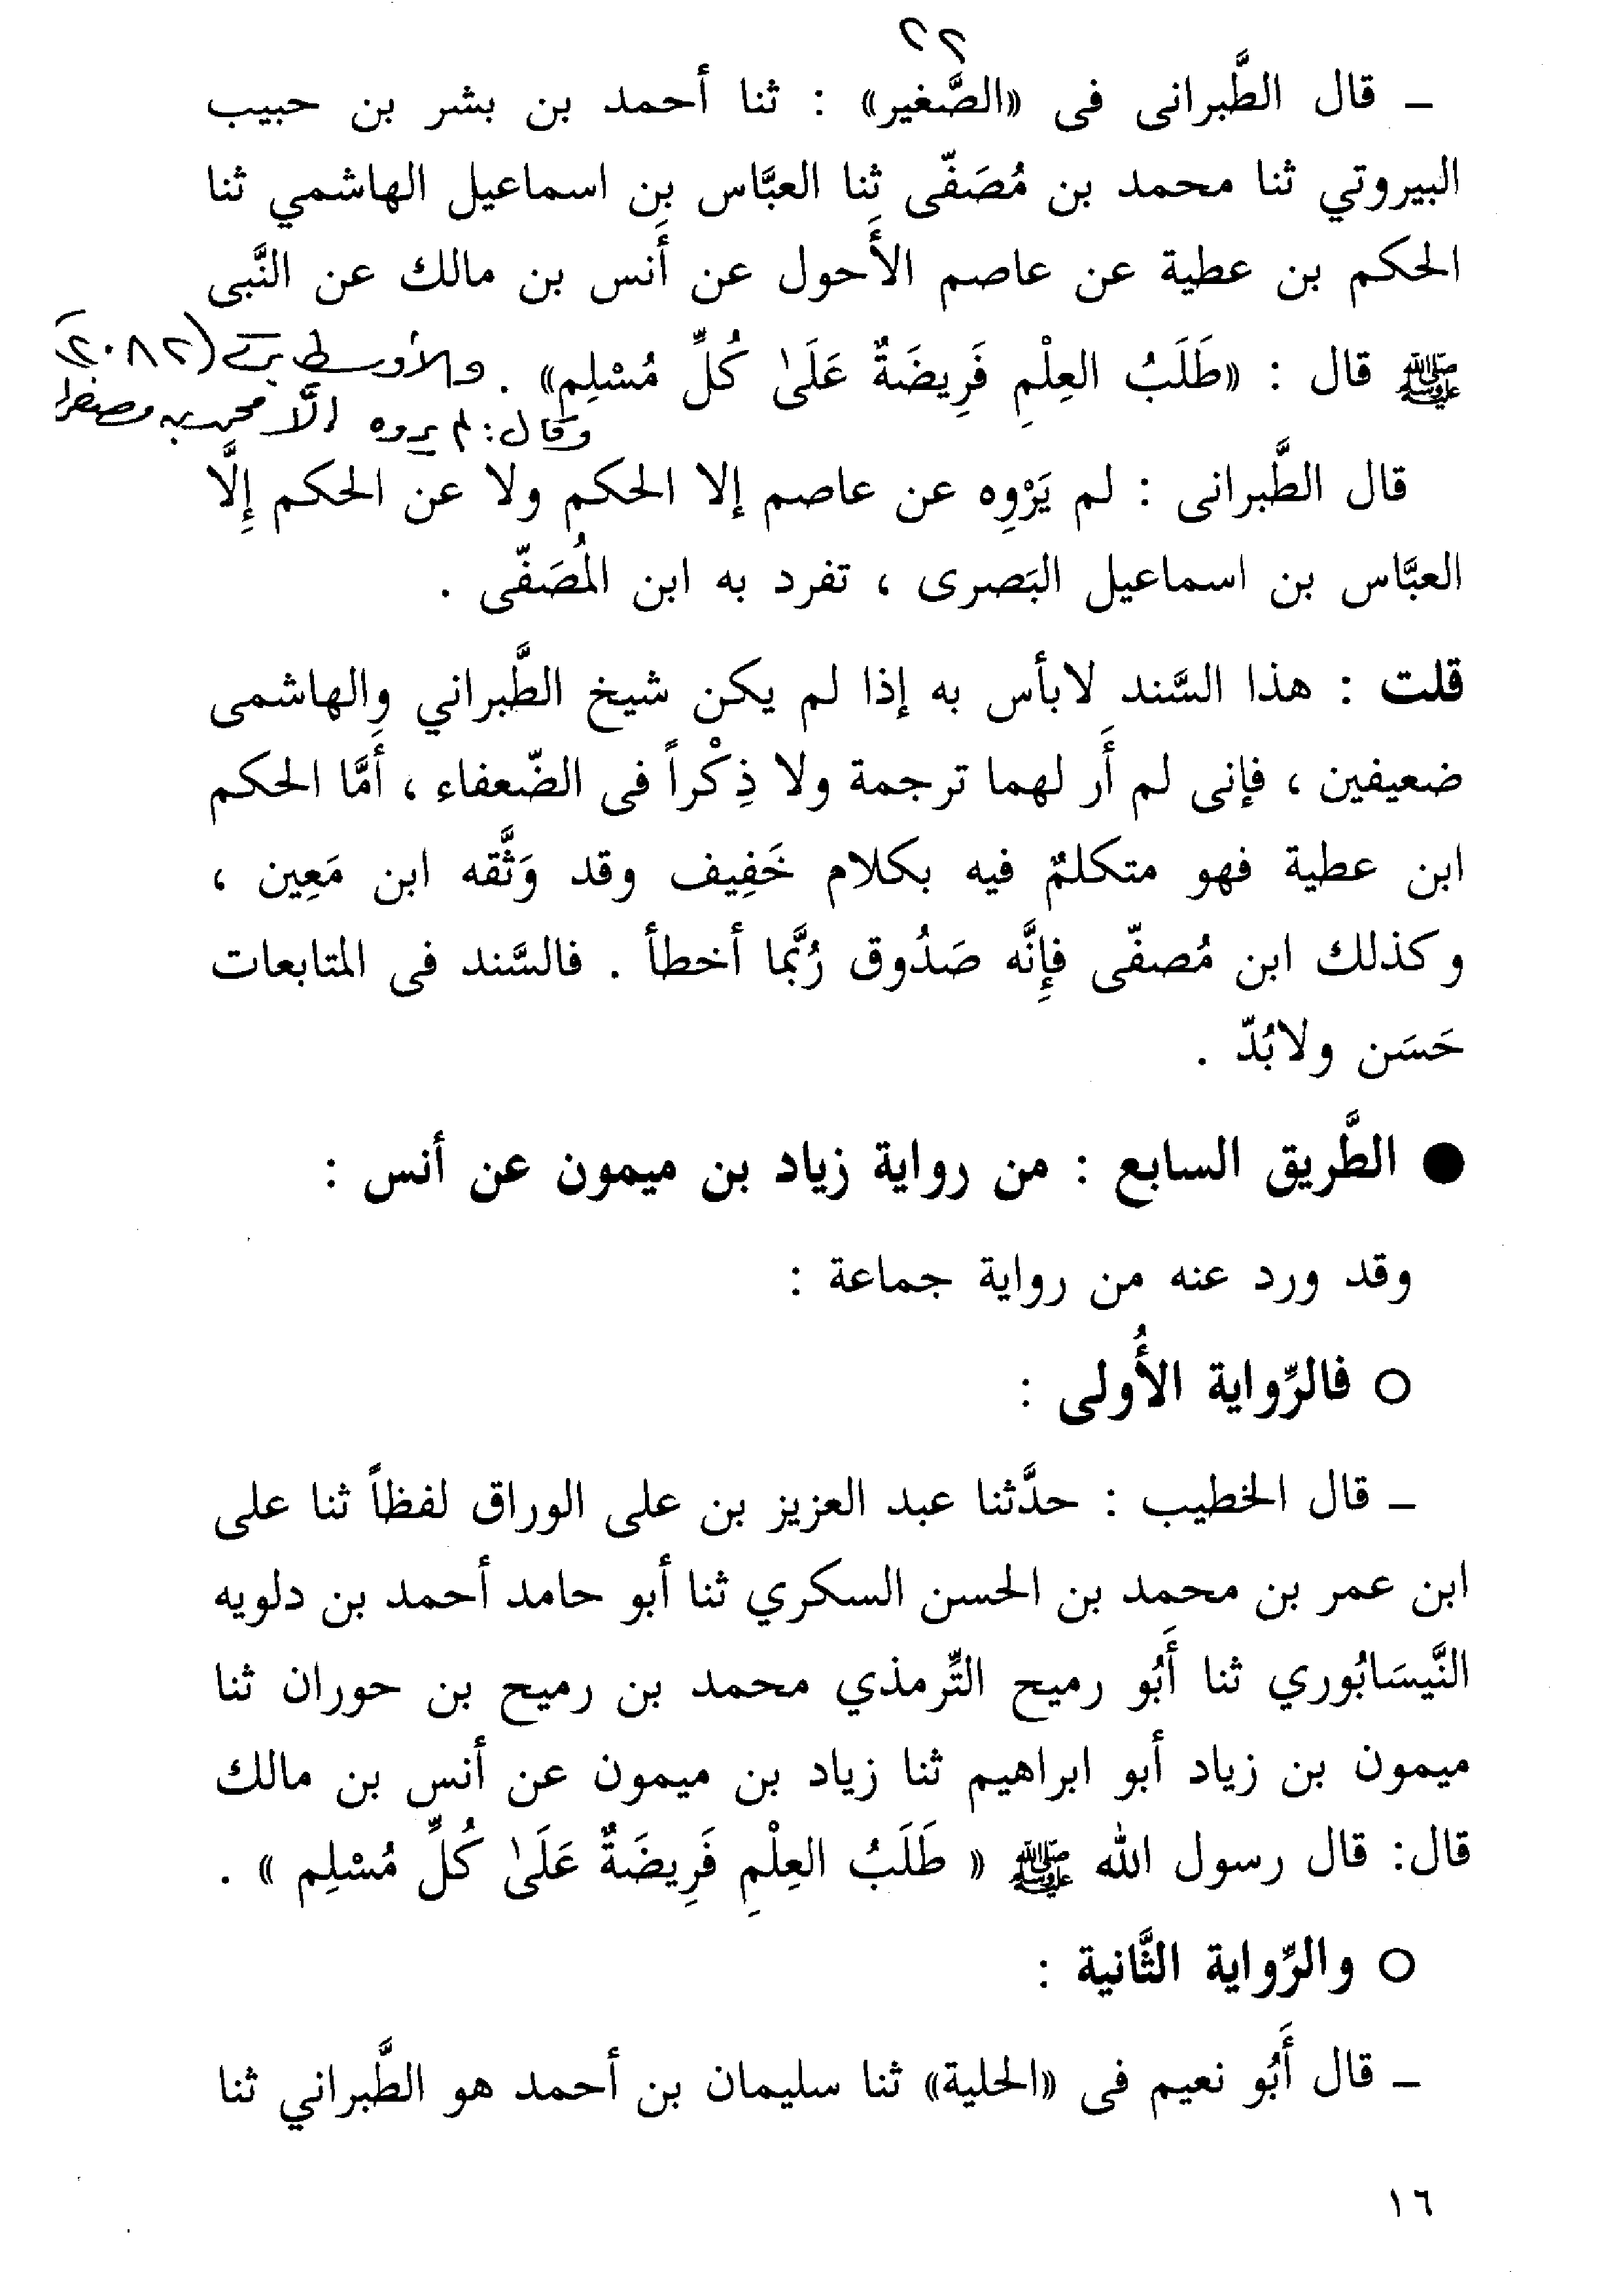 ٢٢
ـ قال الطَّبرانى فى «الصَّغير» : ثنا أحمد بن بشر بن حبيب
البيروتي ثنا محمد بن مُصَفّى ثنا العبَّاس بن اسماعيل الهاشمي ثنا
الحكم بن عطية عن عاصم الأَحول عن أَنس بن مالك عن النَّبى
ﷺ قال : «طَلَبُ العِلْمِ فَرِيضَةٌ عَلَىٰ كُلِّ مُسْلِمٍ» . والأوسط (٢٠٨٢)
وقال : لم يروه إلَّا محمد بن مصفى
قال الطَّبرانى : لم يَرْوِه عن عاصم إلا الحكم ولا عن الحكم إِلَّا
العبَّاس بن اسماعيل البَصرى ، تفرد به ابن المُصَفّى .
قلت : هذا السَّند لابأس به إذا لم يكن شيخ الطَّبراني والهاشمى
ضعيفين ، فإنى لم أَر لهما ترجمة ولا ذِكْراً فى الضّعفاء ، أَمَّا الحكم
ابن عطية فهو متكلمٌ فيه بكلام خَفِيف وقد وَثَّقه ابن مَعِين ،
وكذلك ابن مُصفّى فإِنَّه صَدُوق رُبَّما أخطأ . فالسَّند فى المتابعات
حَسَن ولابُدّ .
● الطَّريق السابع : من رواية زياد بن ميمون عن أنس :
وقد ورد عنه من رواية جماعة :
○ فالرِّواية الأُولى :
ـ قال الخطيب : حدَّثنا عبد العزيز بن على الوراق لفظاً ثنا على
ابن عمر بن محمد بن الحسن السكري ثنا أبو حامد أحمد بن دلويه
النَّيسَابُوري ثنا أَبُو رميح التِّرمذي محمد بن رميح بن حوران ثنا
ميمون بن زياد أبو ابراهيم ثنا زياد بن ميمون عن أنس بن مالك
قال: قال رسول الله ﷺ « طَلَبُ العِلْمِ فَرِيضَةٌ عَلَىٰ كُلِّ مُسْلِم » .
○ والرِّواية الثَّانية :
ـ قال أَبُو نعيم فى «الحلية» ثنا سليمان بن أحمد هو الطَّبراني ثنا
١٦